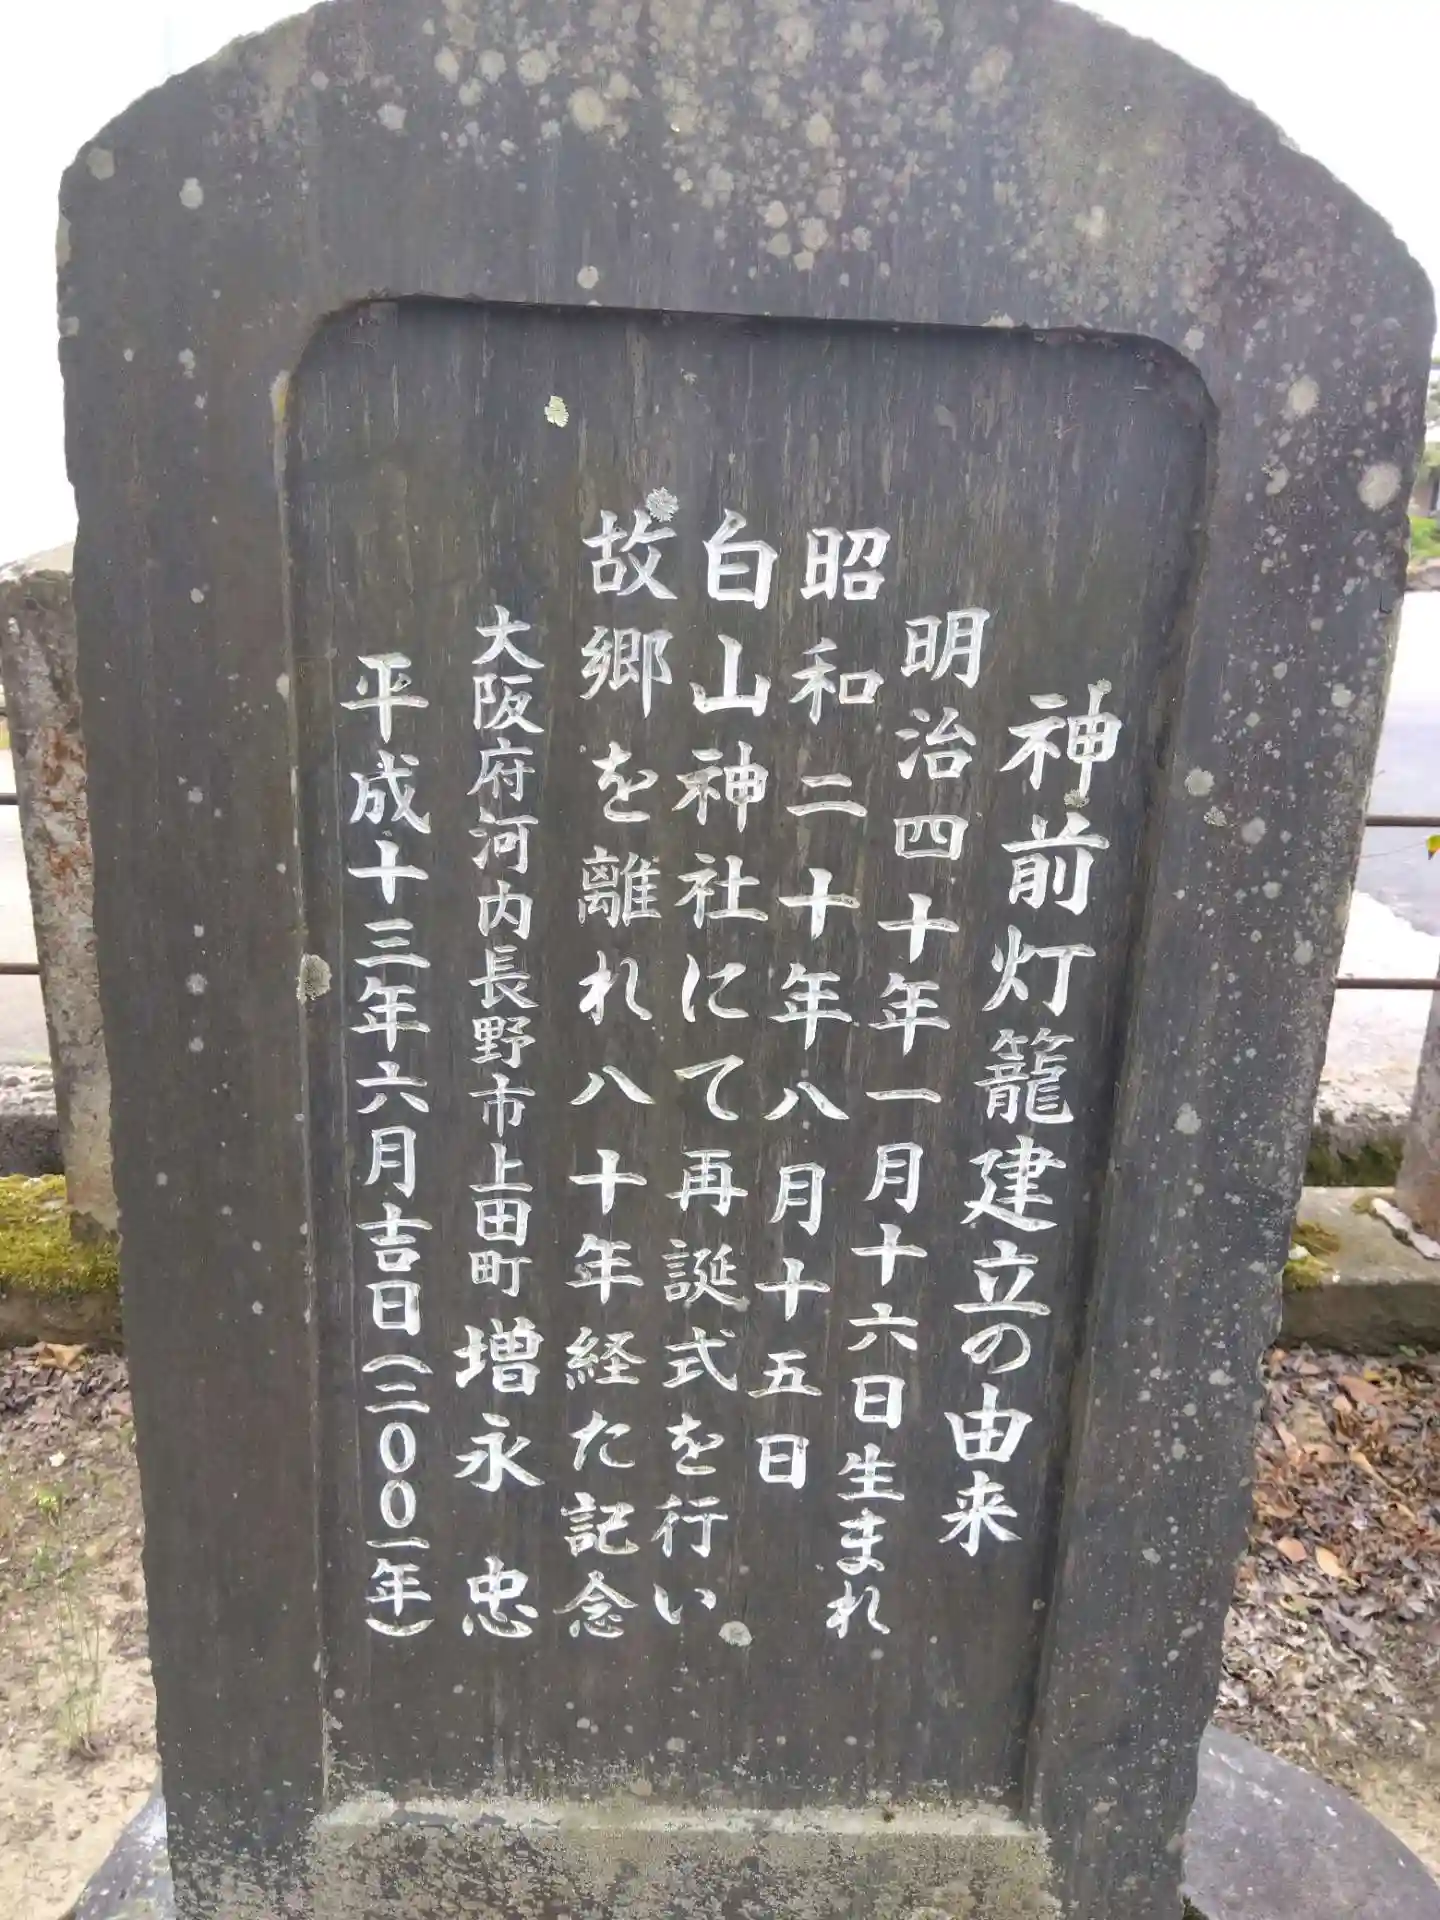 神前灯籠建立の由来
明治四十年一月十六日生まれ
昭和二十年八月十五日
白山神社にて再誕式を行い
故郷を離れ八十年経た記念
大阪府河内長野市上田町 増永 忠
平成十三年六月吉日(二〇〇一年)